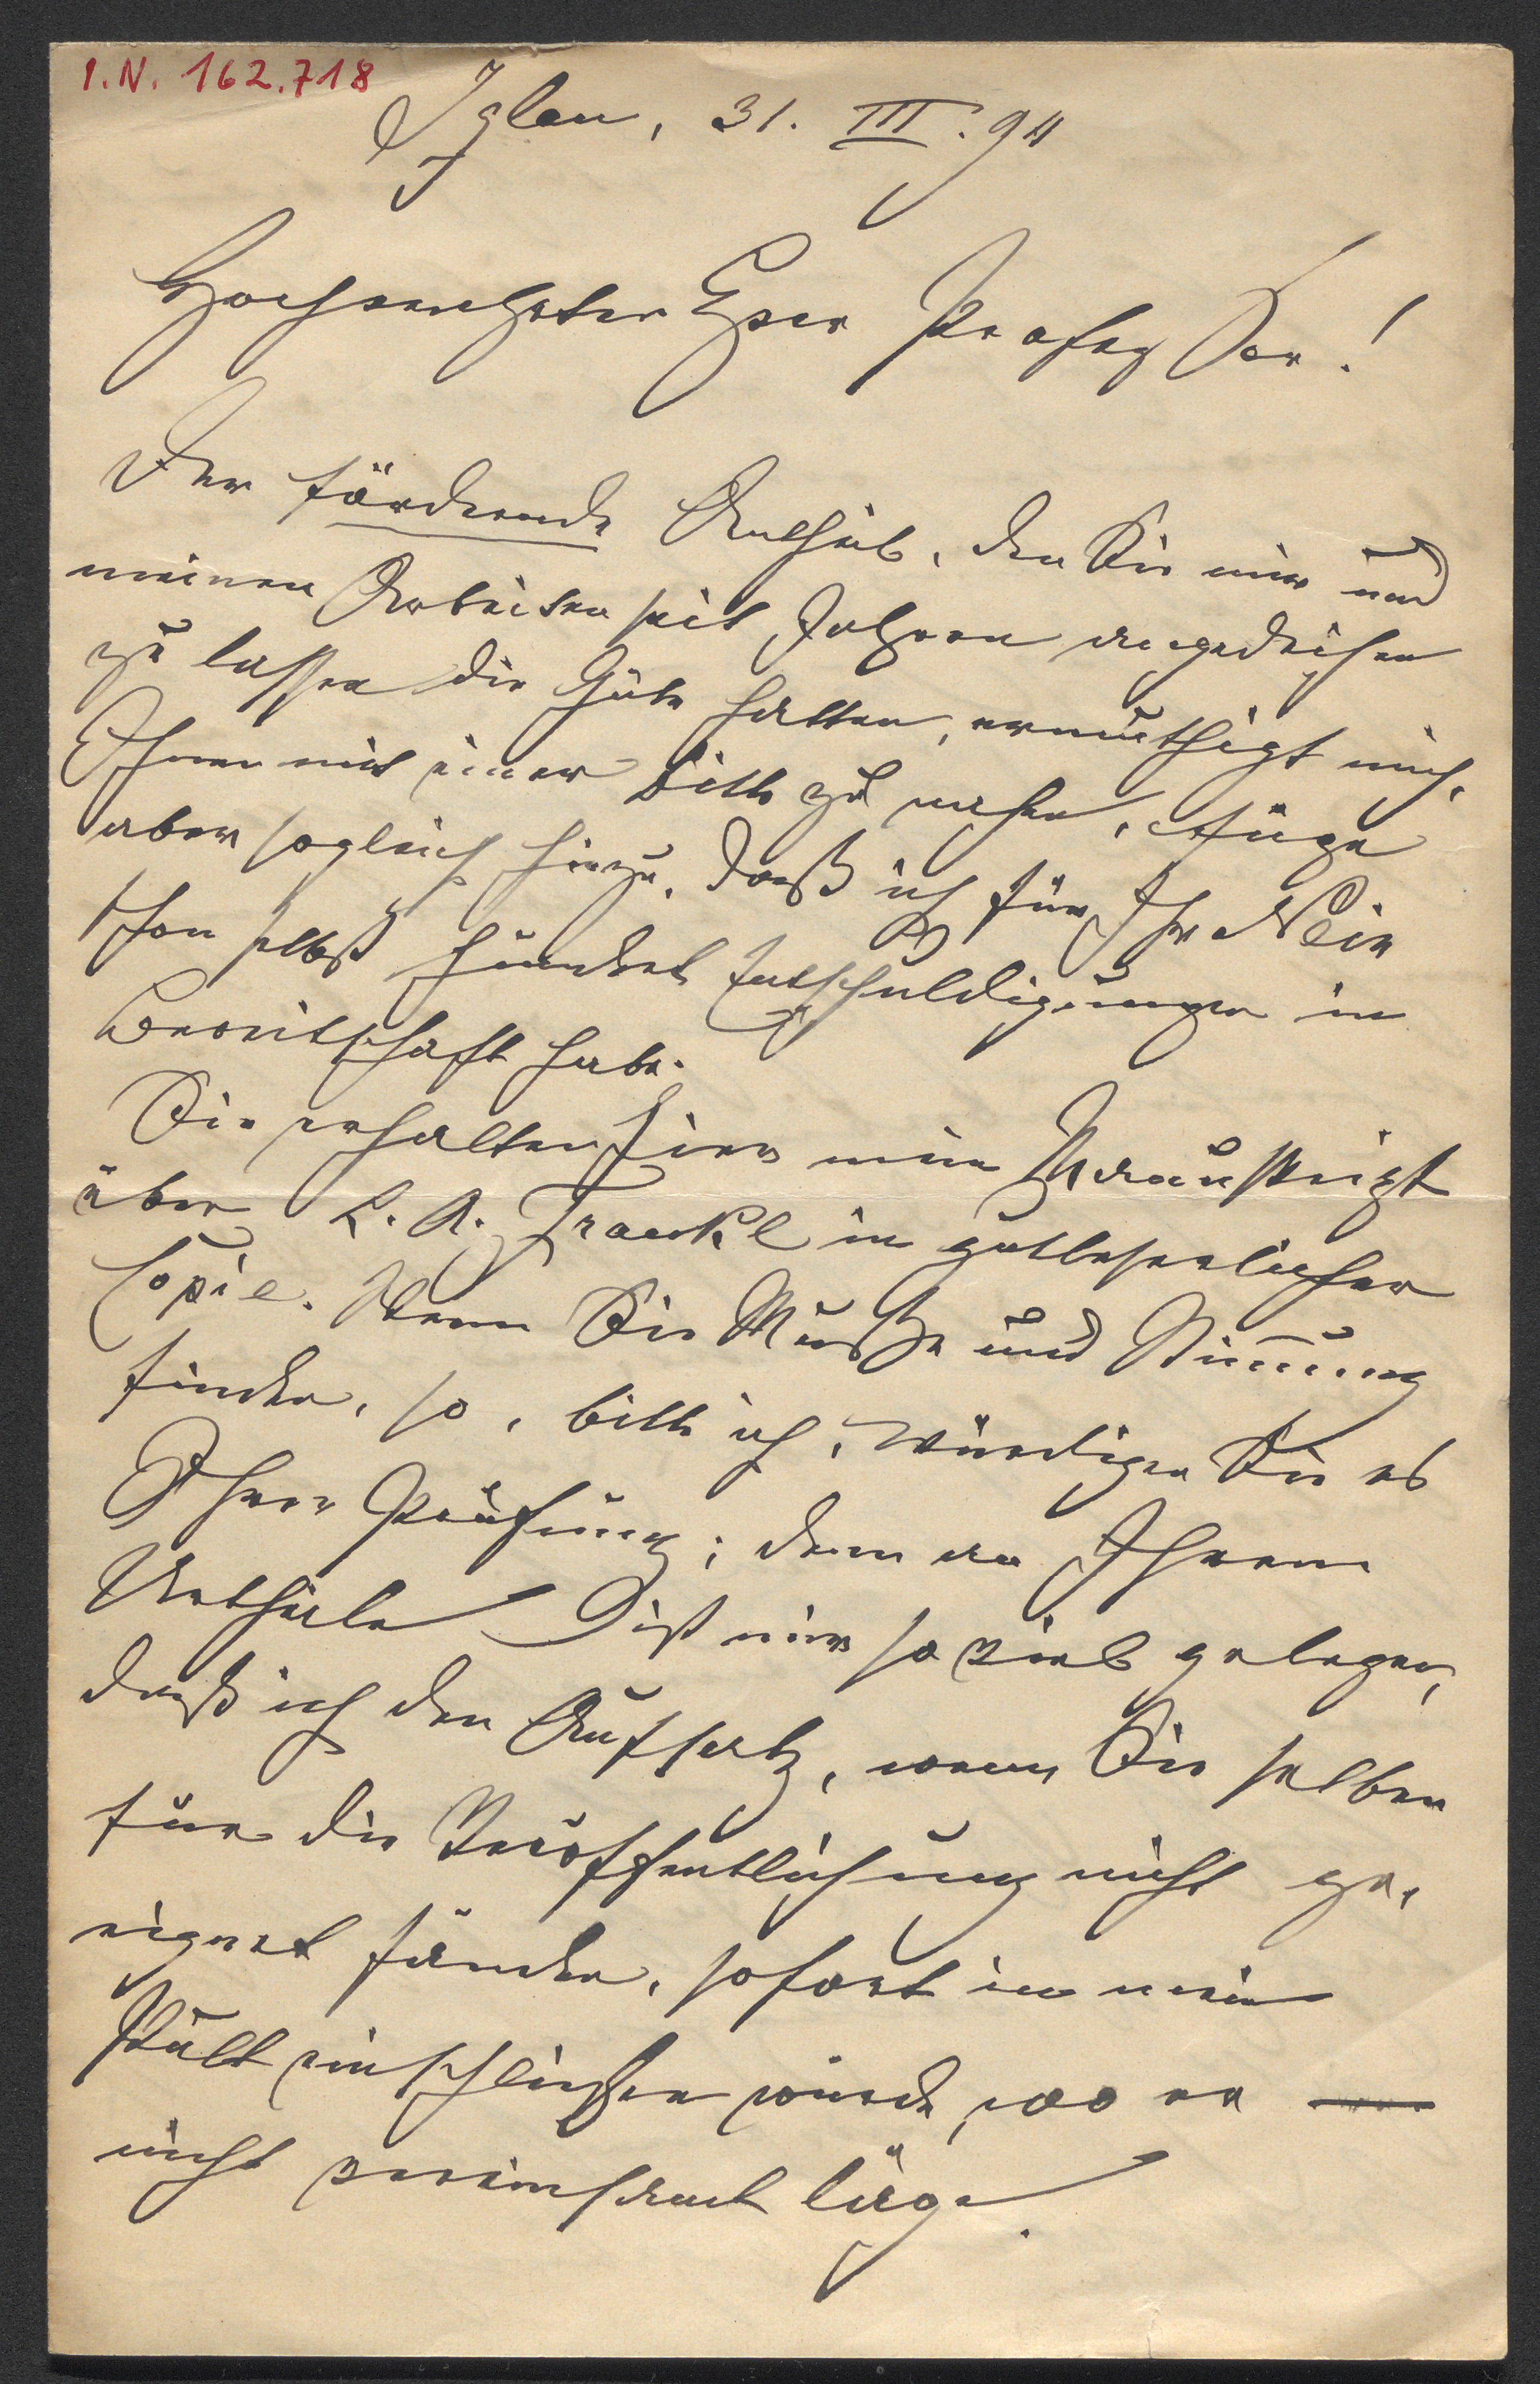 I.N. 162.718
Iglau, 31. III. 94
Hochverehrter Herr Professor!
Der fördernde Antheil, den Sie mir und
meinen Arbeiten seit Jahren angedeihen
zu lassen die Güte hatten, ermuthigt mich,
Ihnen mit einer Bitte zu nahen, füge
aber sogleich hinzu, daß ich für Ihr Nein
schon selbst hundert Entschuldigungen in
Bereitschaft habe.
Sie erhalten hier mein Manuskript
über L. A. Frankl in gutleserlicher
Copie. Wenn Sie Muße und Stimmung
finden, so, bitte ich, würdigen Sie es
Ihrer Prüfung; denn an Ihrem
Urtheile ist mir so viel gelegen,
daß ich den Aufsatz, wenn Sie selben
für die Veröffentlichung nicht ge-
eignet fänden, sofort in mein
Pult einschließen würde, wo er
nicht vereinsamt läge.